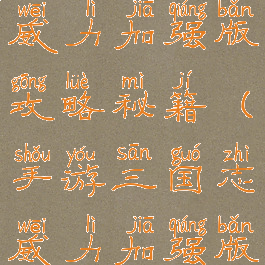 wēi lì jiā qiáng bǎn
威力加强版
gōng lüè mì jí
攻略秘籍(
shǒu yóu sān guó zhì
手游三国志
wēi lì jiā qiáng bǎn
威力加强版